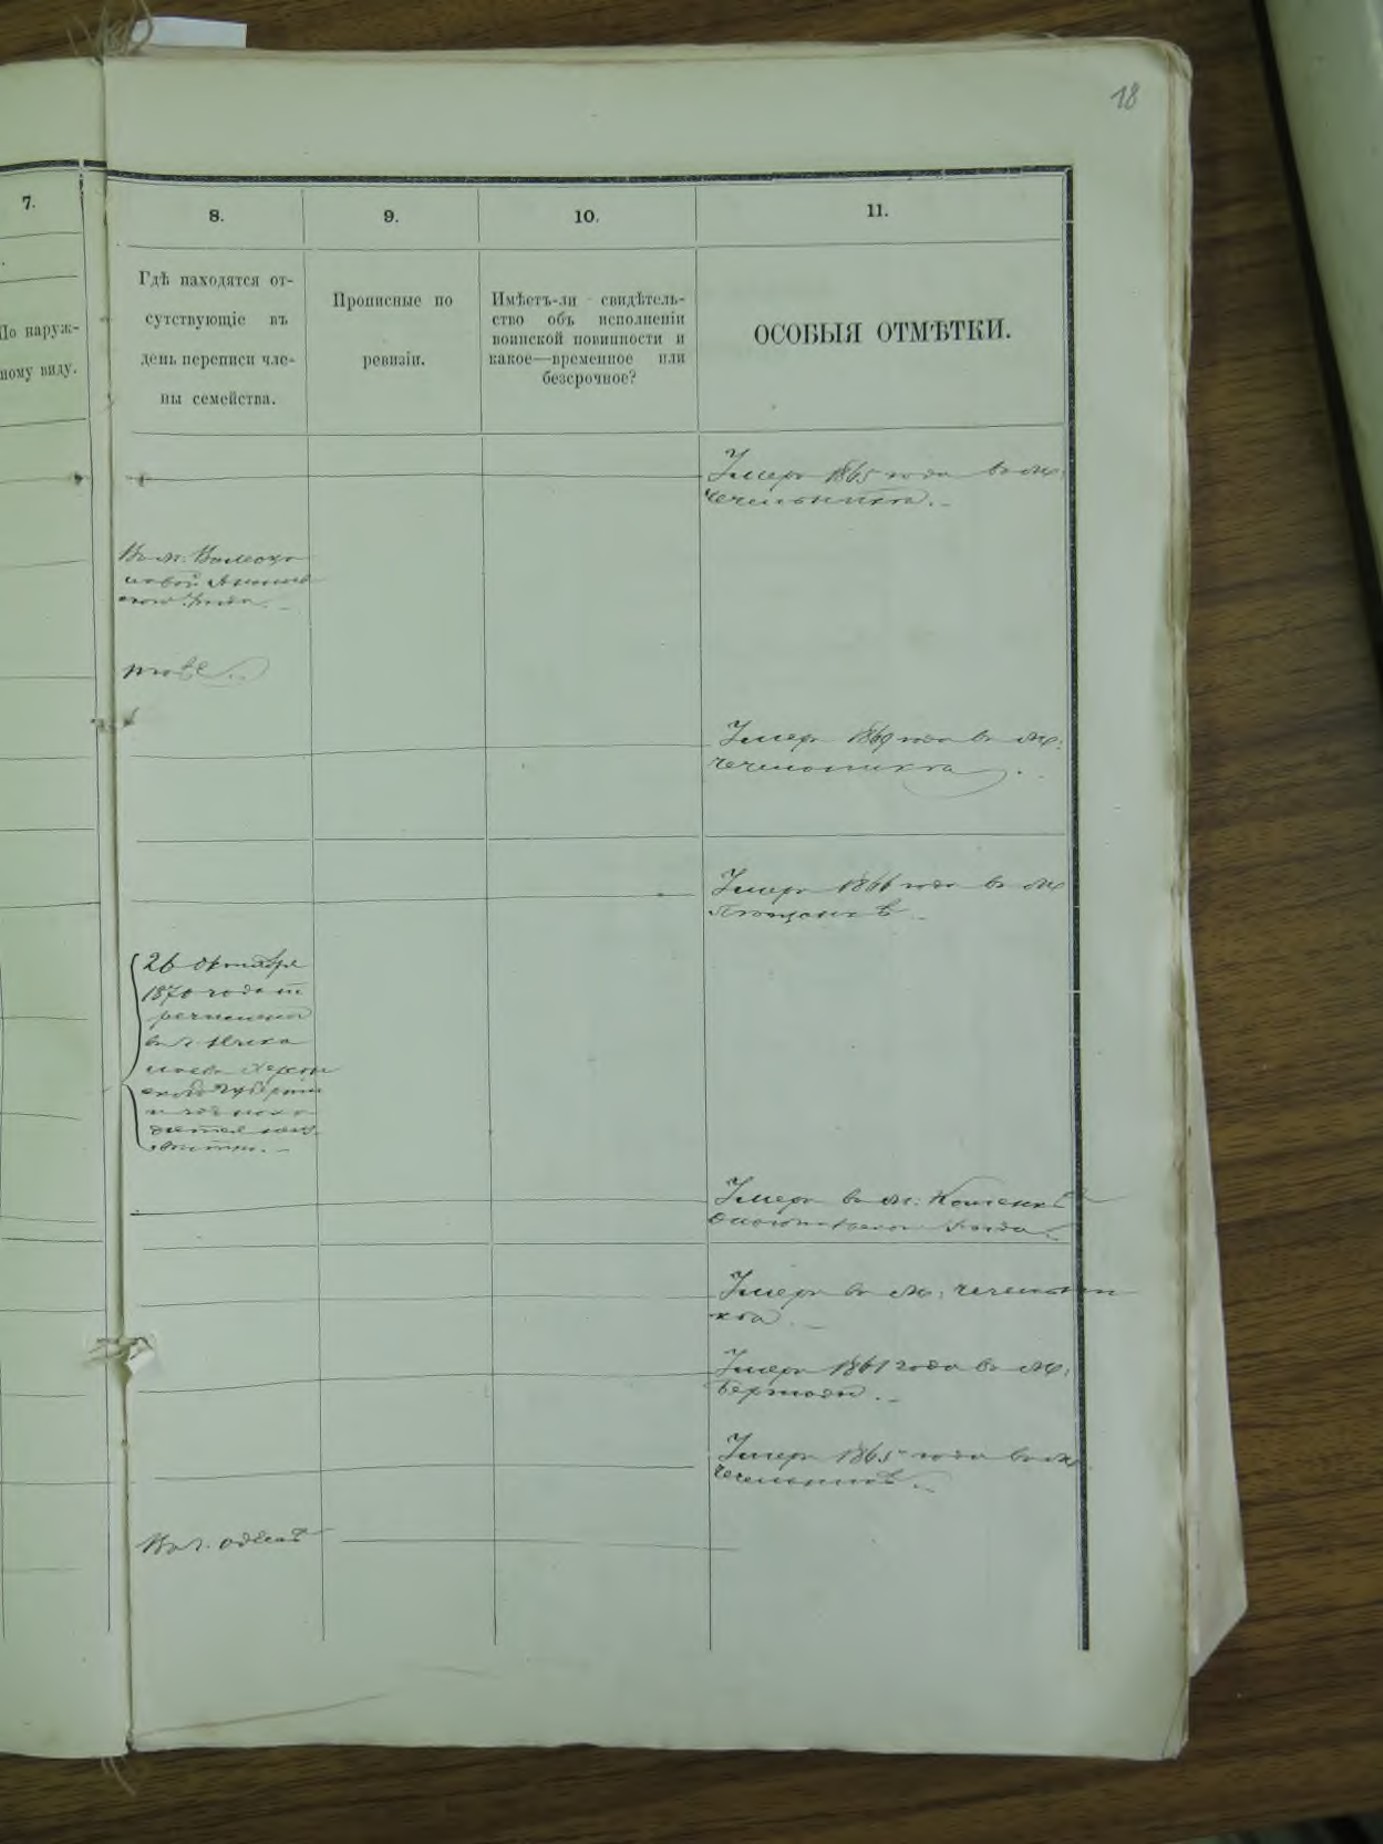 18
7.
8.
9.
10.
11.
По наруж-
ному виду.
Гдѣ находятся от-
сутствующіе въ
день переписи чле-
ны семейства.
Прописные по
ревизіи.
Имѣетъ-ли свидѣтель-
ство объ исполненіи
воинской повинности и
какое—временное или
безсрочное?
ОСОБЫЯ ОТМѢТКИ.
Умеръ 1865 года въ м:
Чечельникѣ.
Въ м:
уѣзда.
тоже
Умеръ 1869 года въ м:
Чечельника.
Умеръ 1866 года въ м:
26 Октября
1870 года
въ г. Нико
лаевъ Херсон
ской Губерніи
Умеръ въ м:
уѣзда.
Умеръ въ м: Чечельни
кѣ.
Умеръ 1861 года въ м:
Бершади.
Умеръ 1865 года въ м:
Чечельникѣ.
Въ г. Одессѣ